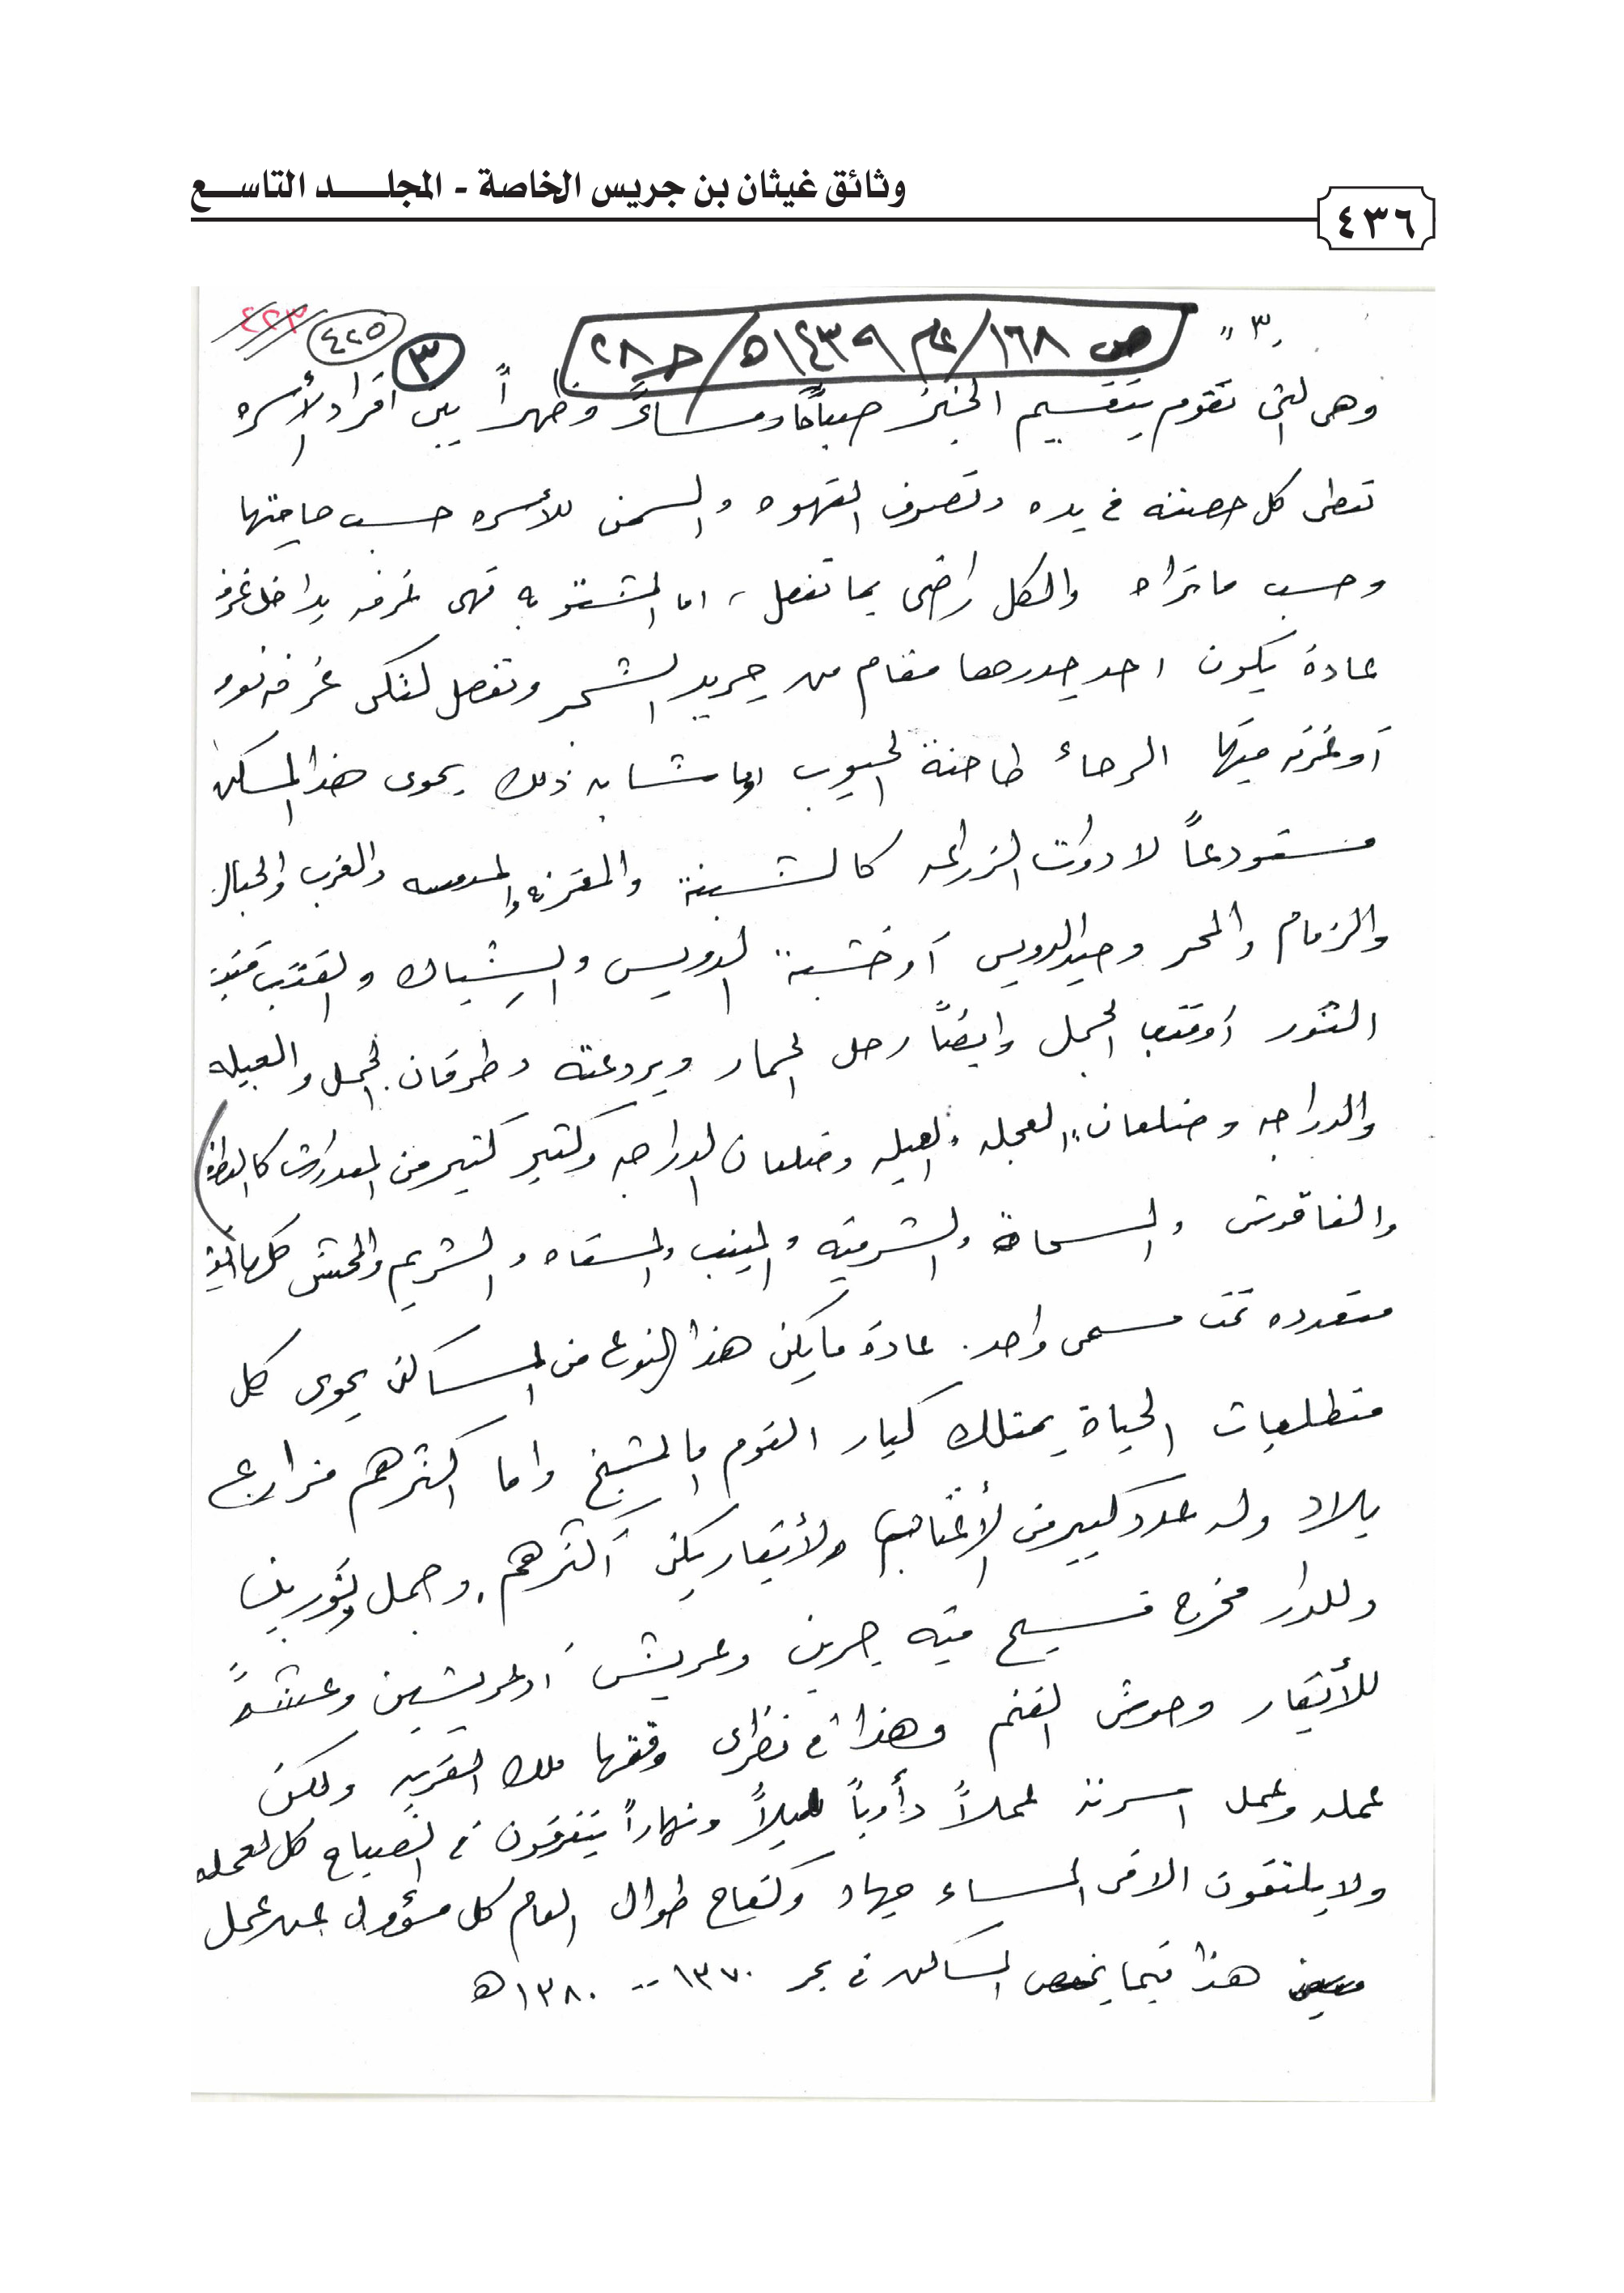 وثائق غيثان بن جريس الخاصة - المجلـــد التاســـع
٤٣٦
"٣"
ص ١٦٨/ عام ١٤٣٩هـ/ ج٢٨
٤٢٥
٤٢٣
٣
وهي التي تقوم بتقسيم الخبز صباحًا ومساءً وظهراً بين افراد الأسره
تعطى كل حصته في يده وتصرف القهوه والسمن للأسره حسب حاجتها
وحسب ماتراه والكل راضي بما تفعل، اما المشتويه فهي غرفه بداخل غرفه
عادة يكون احد جدرها مقام من جريد الشجر وتفصل لتكن غرفة نوم
أو غرفه فيها الرحاء طاحنة الحبوب اوما شابه ذلك يحوى هذا المسكن
مستودعاً لادوات الزراعه كالشبنة والمقرنه والمدمسه والغرب والحبال
والزمام والمحر وحيد الدويس أو خشبة الدويس والشباك والقتب قتب
الثور أو قتب الجمل وايضاً رحل الحمار وبردعته وطرفان الجمل والعبيله
والدراجه وضلعان العجله العيله وضلعان الدراجه وكثير كثير من المعدات
والفاقوش والسحاة والشرفيه والمينب والمسقاه والشريم والمحش كلها
متعدده تحت مسمى واحد. عادة مايكن هذا النوع من المساكن يحوى كل
متطلبات الحياة يمتلك كبار القوم اما الشيخ واما اكثرهم مزارع
بلاد وله عدد كبير من الأغنام والأبقار يكن أكثرهم. وجمل وثورين
وللدار مخرج فسيح فيه جرين وعريش أو عريشين وعشة
للأبقار وحوش الغنم وهذا في نظرى وقتها ملك القريه ولكن
عمله وعمل اسرته عملاً دأوباً ليلاً ونهاراً يتفرقون في الصباح كل لعمله
ولا يلتقون الا في المساء جهاد وكفاح طوال العام كل مسؤول عن عمل
معين هذا فيما يخص المساكن في بحر ١٣٧٠ -- ١٣٨٠هـ